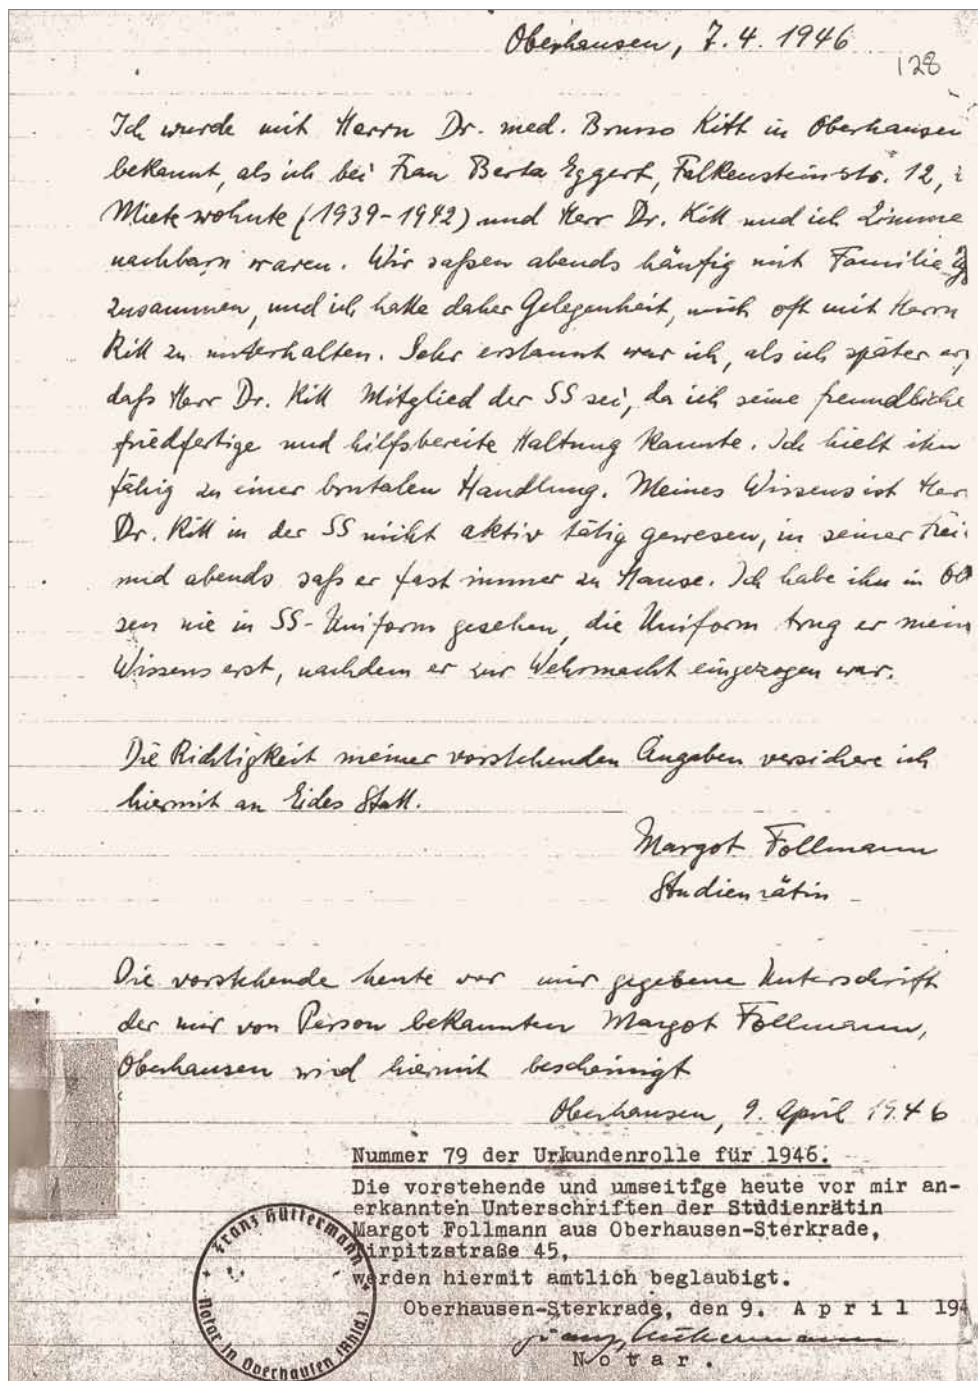 Oberhausen, 7.4.1946
128
Ich wurde mit Herrn Dr. med. Bruno Kitt in Oberhausen
bekannt, als ich bei Frau Berta Eggert, Falkensteinstr. 12,
Miete wohnte (1939-1942) und Herr Dr. Kitt und ich Zimme
nachbarn waren. Wir saßen abends häufig mit Familie
zusammen, und ich hatte daher Gelegenheit, mich oft mit Herrn
Kitt zu unterhalten. Sehr erstaunt war ich, als ich später
daß Herr Dr. Kitt Mitglied der SS sei, da ich seine freundliche
friedfertige und hilfsbereite Haltung kannte. Ich hielt ihn
fähig zu einer brutalen Handlung. Meines Wissens ist Her
Dr. Kitt in der SS nicht aktiv tätig gewesen, in seiner Frei
und abends saß er fast immer zu Hause. Ich habe ihn in
sen nie in SS-Uniform gesehen, die Uniform trug er mein
Wissens erst, nachdem er zur Wehrmacht eingezogen war.
Die Richtigkeit meiner vorstehenden Angaben versichere ich
hiermit an Eides Statt.
Margot Follmann
Studienrätin
Die vorstehende heute vor mir gegebene Unterschrift
der mir von Person bekannten Margot Follmann,
Oberhausen wird hiermit bescheinigt
Oberhausen, 9. April 1946
Nummer 79 der Urkundenrolle für 1946.
Die vorstehende und umseitige heute vor mir an-
erkannten Unterschriften der Studienrätin
Margot Follmann aus Oberhausen-Sterkrade,
irpitzstraße 45,
werden hiermit amtlich beglaubigt.
Oberhausen-Sterkrade, den 9. April 194
Franz Hüttermann
Notar.
Franz Hüttermann
Notar in Oberhausen (Rhld.)